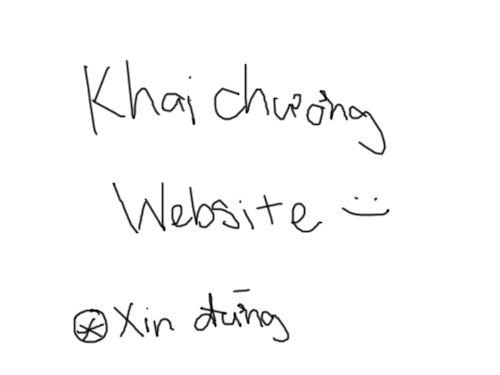 Khai chương
Website :)
⊛ Xin đừng